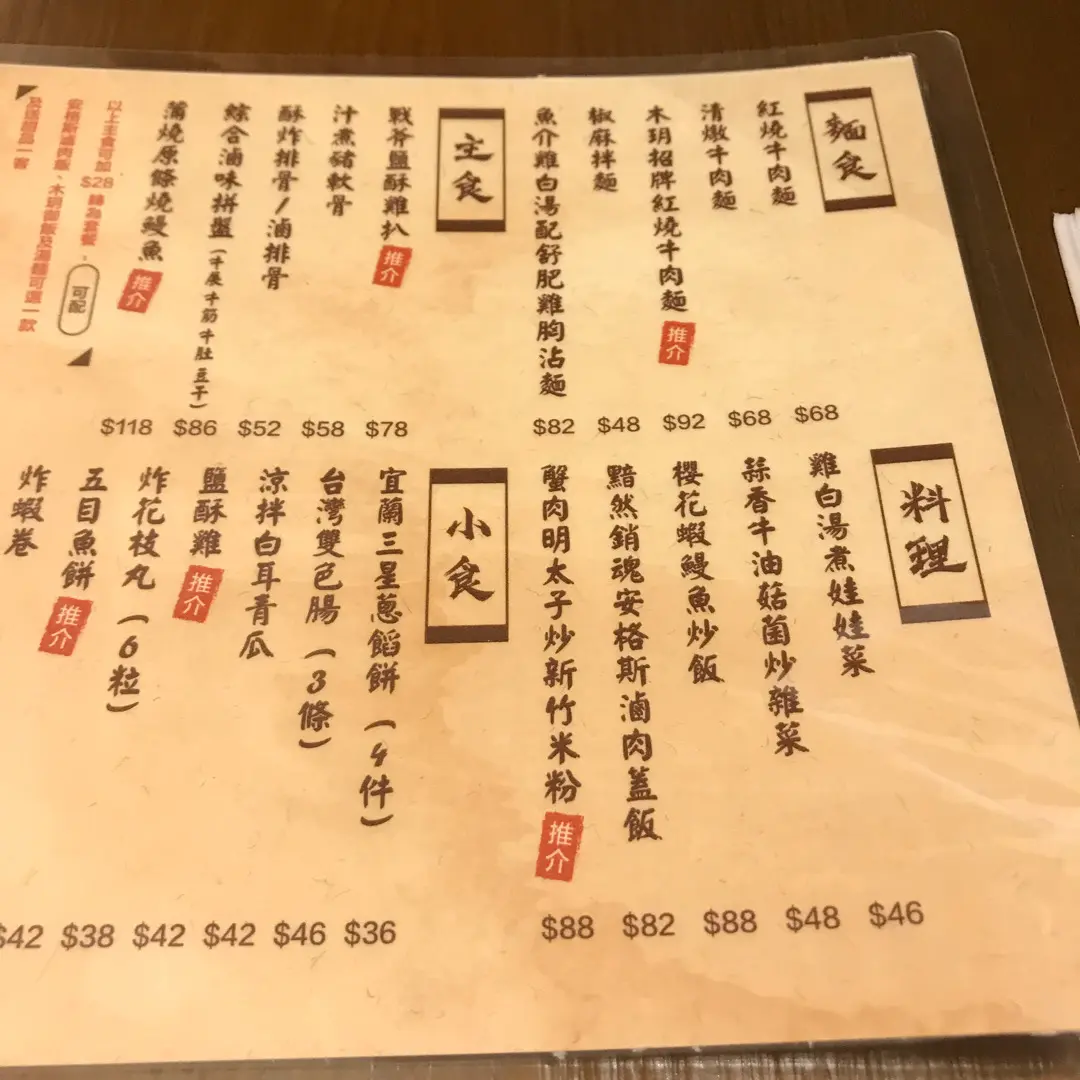 麵食
紅燒牛肉麵 $68
清燉牛肉麵 $68
木玥招牌紅燒牛肉麵 推介 $92
椒麻拌麵 $48
魚介雞白湯配舒肥雞胸沾麵 $82
主食
戰斧鹽酥雞扒 推介 $78
汁煮豬軟骨 $58
酥炸排骨/滷排骨 $52
綜合滷味拼盤(牛展 牛筋 牛肚 豆干) $86
蒲燒原條燒鰻魚 推介 $118
以上主食可加$28轉為套餐、可配
安格斯滷肉飯、木玥御飯及湯麵可選一款
一客
料理
雞白湯煮娃娃菜 $46
蒜香牛油菇菌炒雜菜 $48
櫻花蝦鰻魚炒飯 $88
黯然銷魂安格斯滷肉蓋飯 $82
蟹肉明太子炒新竹米粉 推介 $88
小食
宜蘭三星蔥餡餅(4件) $36
台灣雙色腸(3條) $46
涼拌白耳青瓜 $42
鹽酥雞 推介 $42
炸花枝丸(6粒) $42
五目魚餅 推介 $38
炸蝦卷 $42